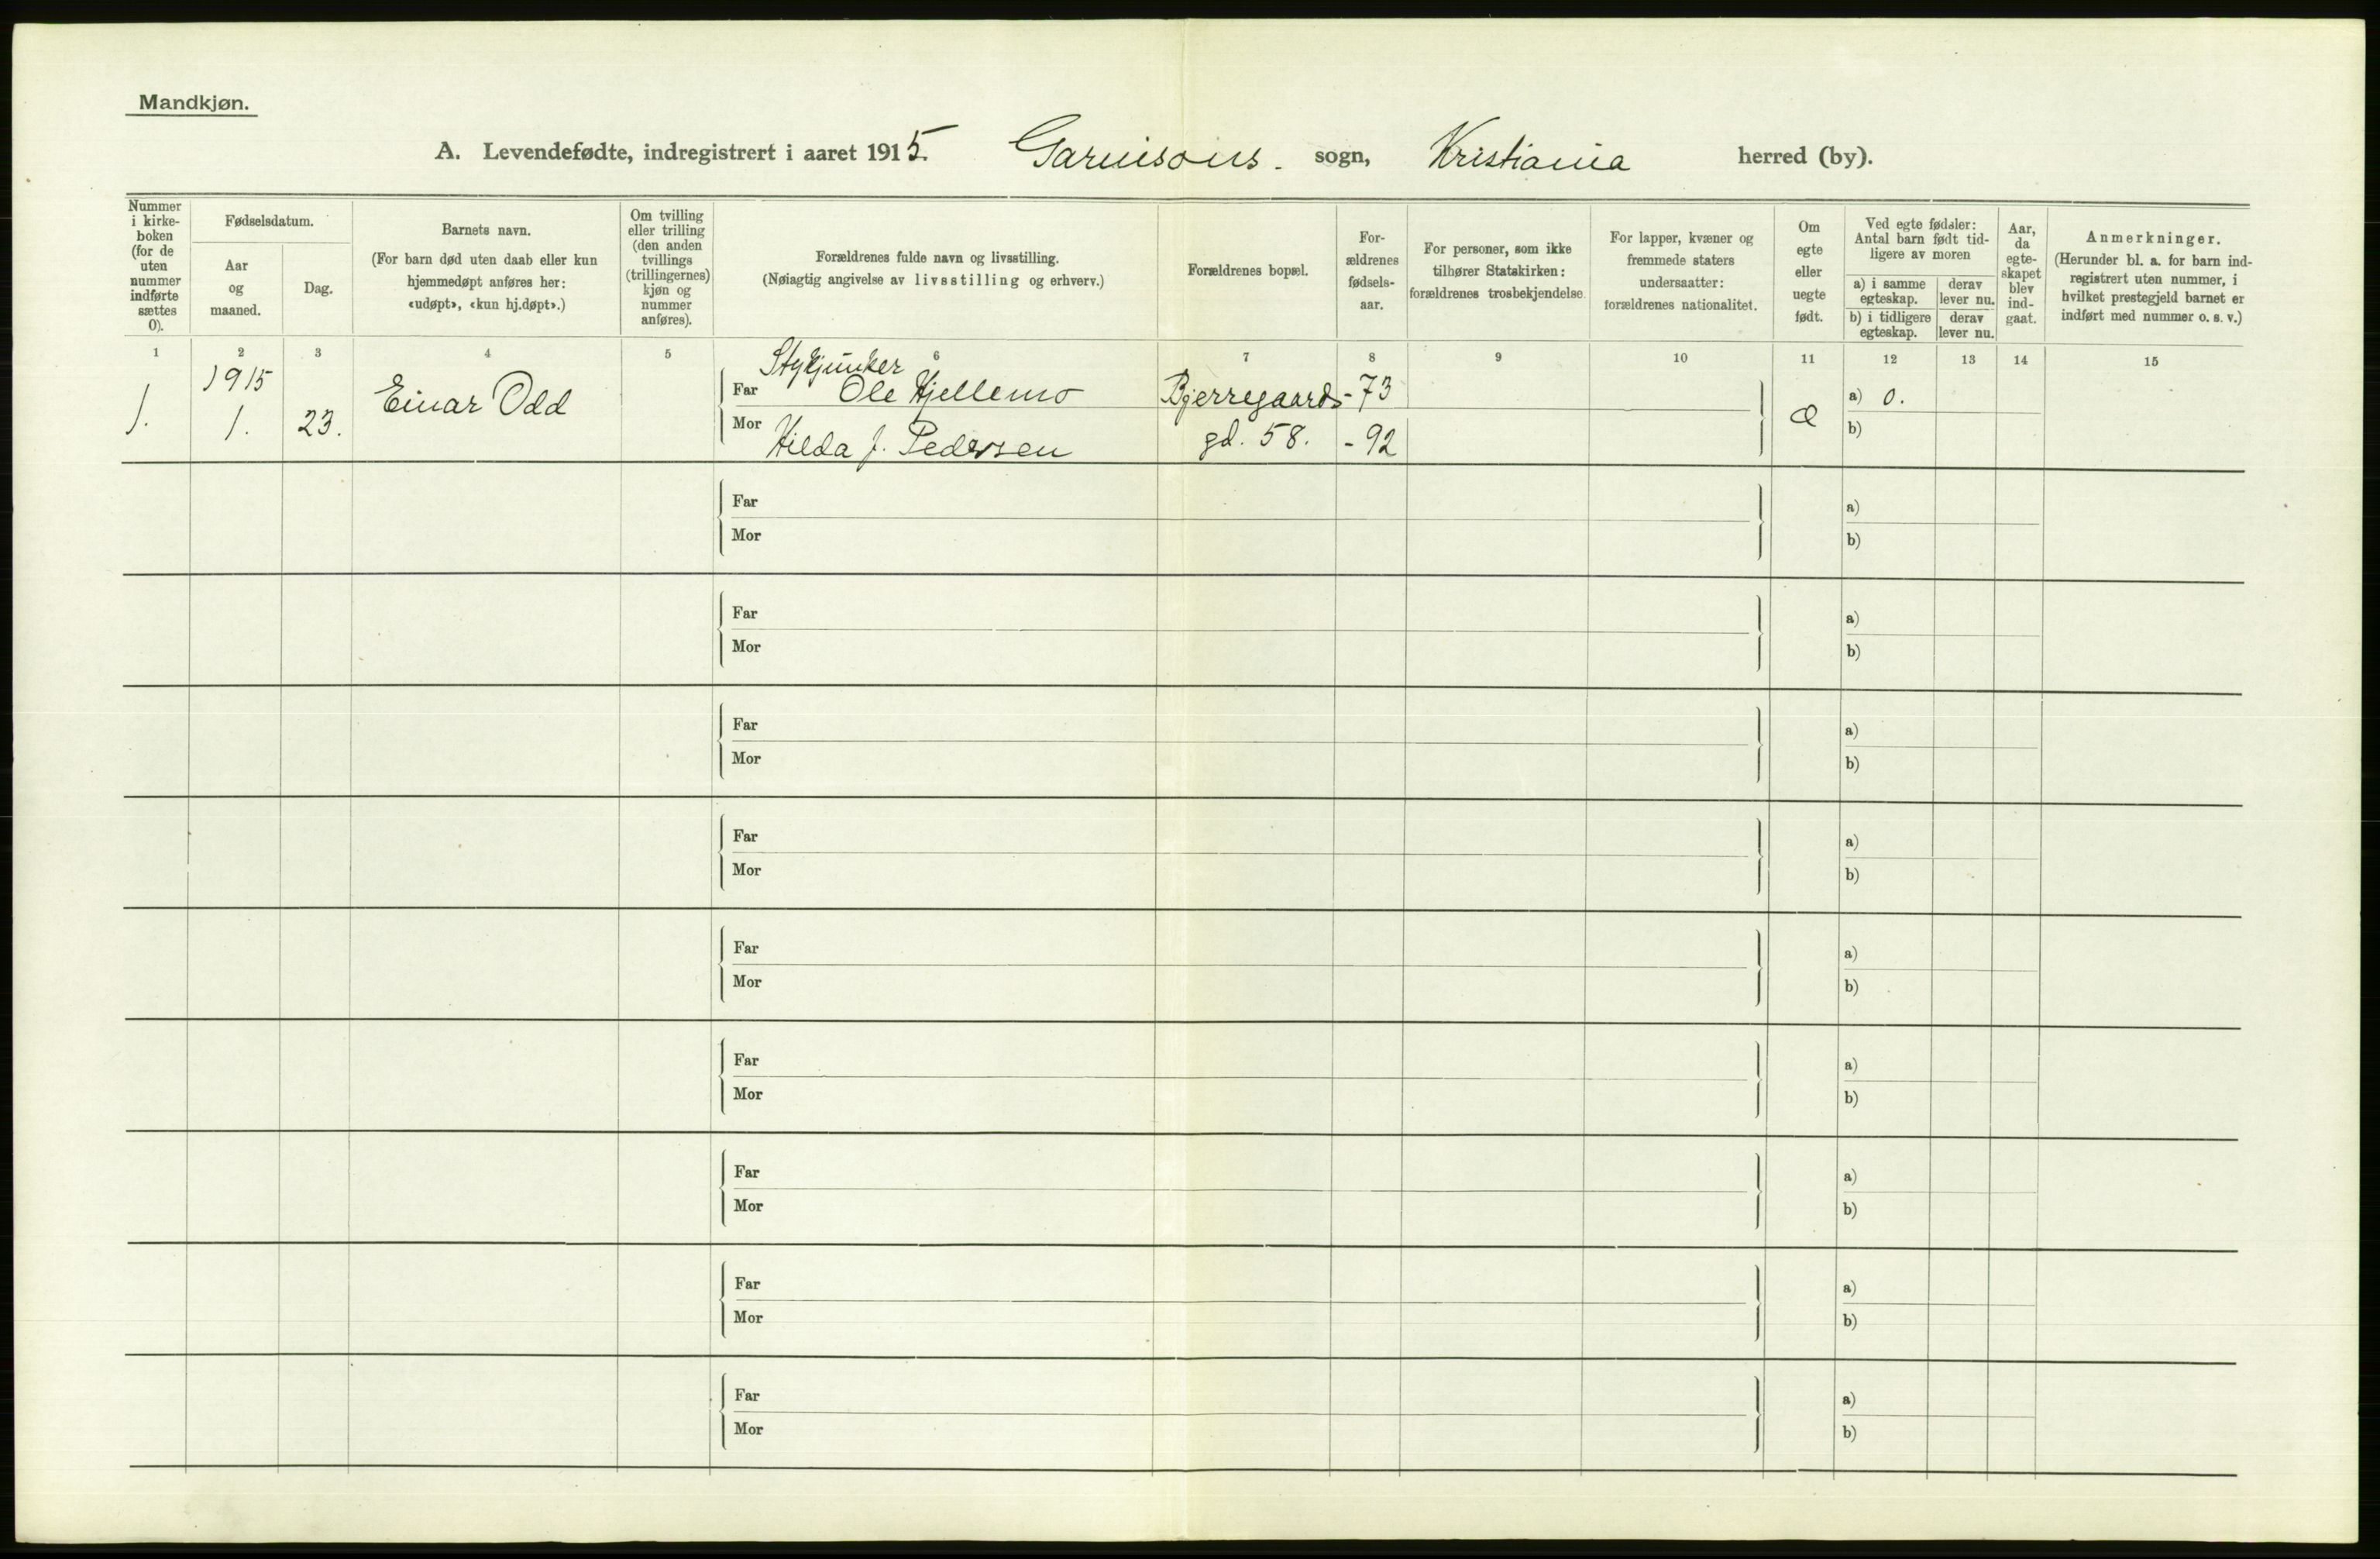 Mandkjøn.
A. Levendefødte, indregistrert i aaret 1915. Garnisons. sogn, Kristiania herred (by).
Nummer i kirke- boken (for de uten nummer indførte sættes 0).
Fødselsdatum.
Aar og maaned.
Dag.
Barnets navn.
(For barn død uten daab eller kun hjemmedøpt anføres her: «udøpt», «kun hj.døpt».)
Om tvilling eller trilling (den anden tvillings (trillingernes) kjøn og nummer anføres).
Forældrenes fulde navn og livsstilling.
(Nøiagtig angivelse av livsstilling og erhverv.)
Forældrenes bopæl.
For- ældrenes fødsels- aar.
For personer, som ikke tilhører Statskirken: forældrenes trosbekjendelse.
For lapper, kvæner og fremmede staters undersaatter: forældrenes nationalitet.
Om egte eller uegte født.
Ved egte fødsler: Antal barn født tid- ligere av moren
a) i samme egteskap.
derav lever nu.
b) i tidligere egteskap.
derav lever nu.
Aar, da egte- skapet blev ind- gaat.
Anmerkninger.
(Herunder bl. a. for barn ind- registrert uten nummer, i hvilket prestegjeld barnet er indført med nummer o. s. v.)
1 2 3 4 5 6 7 8 9 10 11 12 13 14 15
1915 Stykjunker
1. 1. 23. Einar Odd Far Ole Hjellemo Bjerregaards- 73 Æ a) 0.
Mor Hilda J. Pedersen gd. 58. - 92 b)
Far a)
Mor b)
Far a)
Mor b)
Far a)
Mor b)
Far a)
Mor b)
Far a)
Mor b)
Far a)
Mor b)
Far a)
Mor b)
Far a)
Mor b)
Far a)
Mor b)